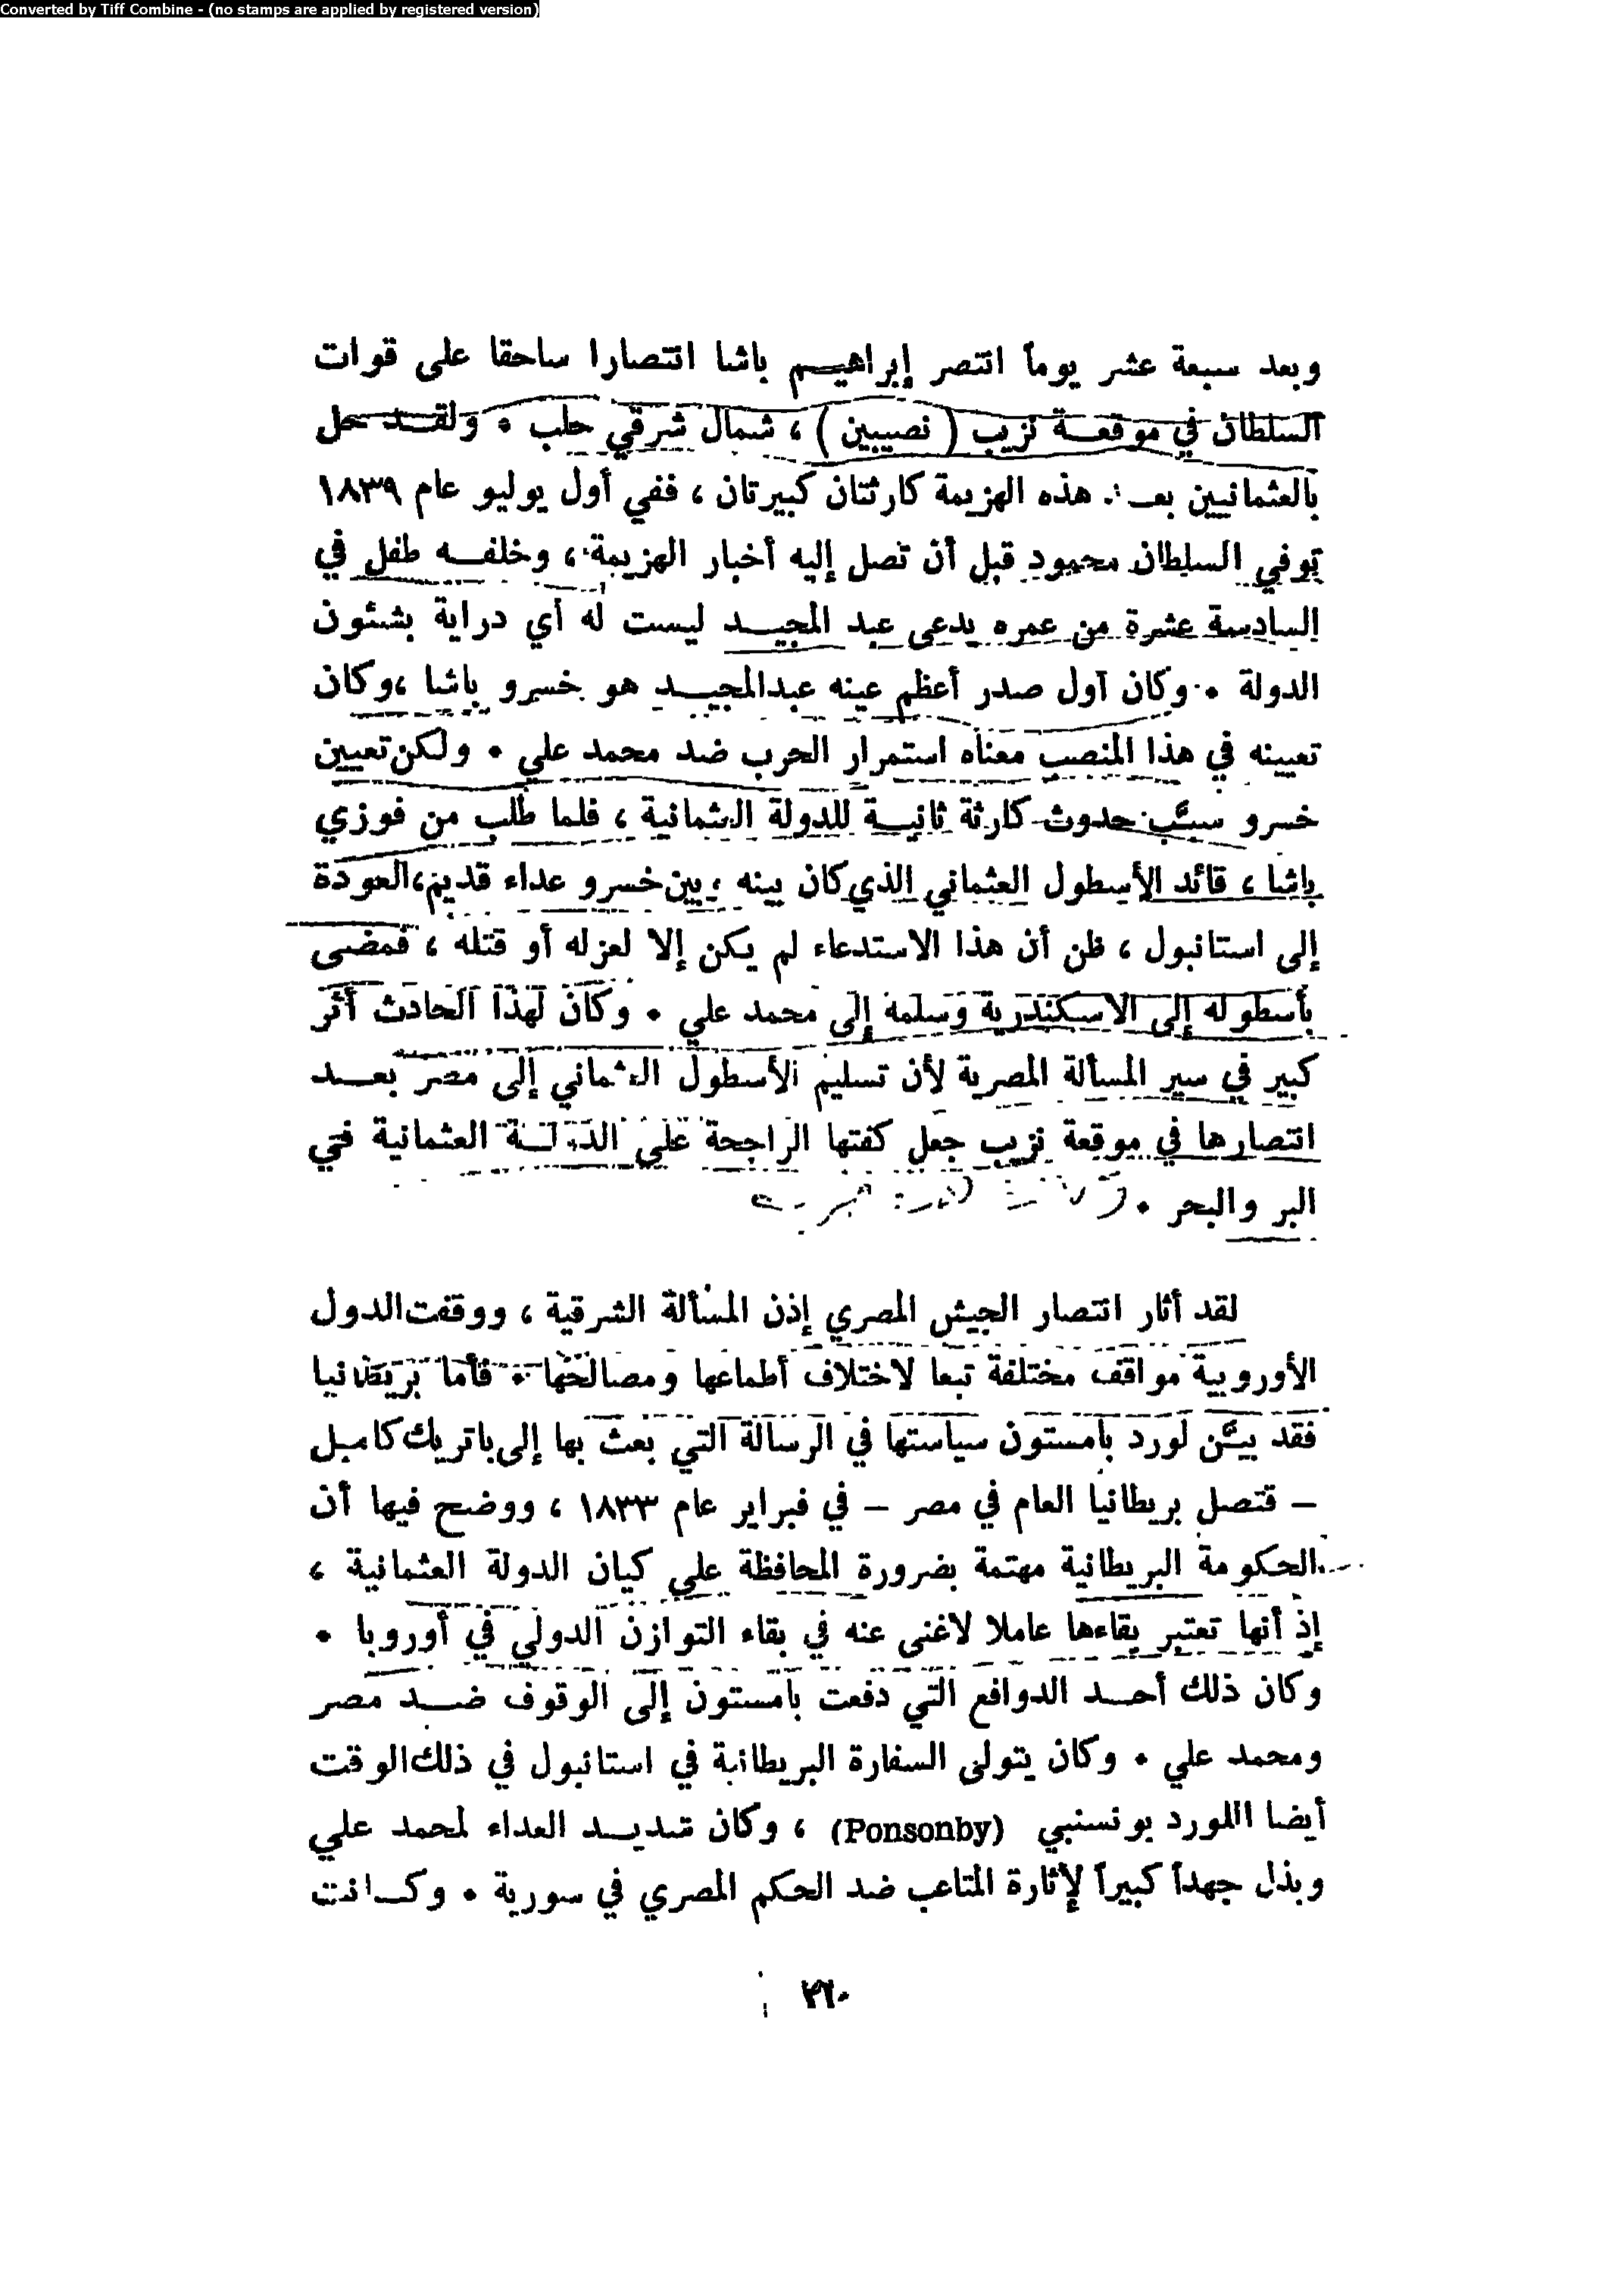 Converted by Tiff Combine - (no stamps are applied by registered version)
وبعد سبعة عشر يوماً انتصر إبراهيم باشا انتصارا ساحقا على قوات
السلطان في موقعة نزيب ( نصيبين ) ، شمال شرقي حلب . ولقد حل
بالعثمانيين بعد هذه الهزيمة كارثتان كبيرتان ، ففي أول يوليو عام ١٨٣٩
توفي السلطان محمود قبل أن تصل إليه أخبار الهزيمة ، وخلفه طفل في
السادسة عشرة من عمره يدعى عبد المجيد ليست له أي دراية بشئون
الدولة . وكان أول صدر أعظم عينه عبدالمجيد هو خسرو باشا ، وكان
تعيينه في هذا المنصب معناه استمرار الحرب ضد محمد علي . ولكن تعيين
خسرو سبَّب حدوث كارثة ثانية للدولة العثمانية ، فلما طلب من فوزي
باشا ، قائد الأسطول العثماني الذي كان بينه وبين خسرو عداء قديم ، العودة
إلى استانبول ، ظن أن هذا الاستدعاء لم يكن إلا لعزله أو قتله ، فمضى
بأسطوله إلى الاسكندرية وسلمه إلى محمد علي . وكان لهذا الحادث أثر
كبير في سير المسألة المصرية لأن تسليم الأسطول العثماني إلى مصر بعد
انتصارها في موقعة نزيب جعل كفتها الراجحة على الدولة العثمانية في
البر والبحر .
لقد أثار انتصار الجيش المصري إذن المسألة الشرقية ، ووقفت الدول
الأوروبية مواقف مختلفة تبعا لاختلاف أطماعها ومصالحها . فأما بريطانيا
فقد بيَّن لورد بامستون سياستها في الرسالة التي بعث بها إلى باتريك كامبل
– قنصل بريطانيا العام في مصر – في فبراير عام ١٨٣٣ ، ووضح فيها أن
الحكومة البريطانية مهتمة بضرورة المحافظة على كيان الدولة العثمانية ،
إذ أنها تعتبر بقاءها عاملا لاغنى عنه في بقاء التوازن الدولي في أوروبا .
وكان ذلك أحد الدوافع التي دفعت بامستون إلى الوقوف ضد مصر
ومحمد علي . وكان يتولى السفارة البريطانية في استانبول في ذلك الوقت
أيضا اللورد بونسنبي (Ponsonby) ، وكان شديد العداء لمحمد علي
وبذل جهداً كبيراً لإثارة المتاعب ضد الحكم المصري في سورية . وكانت